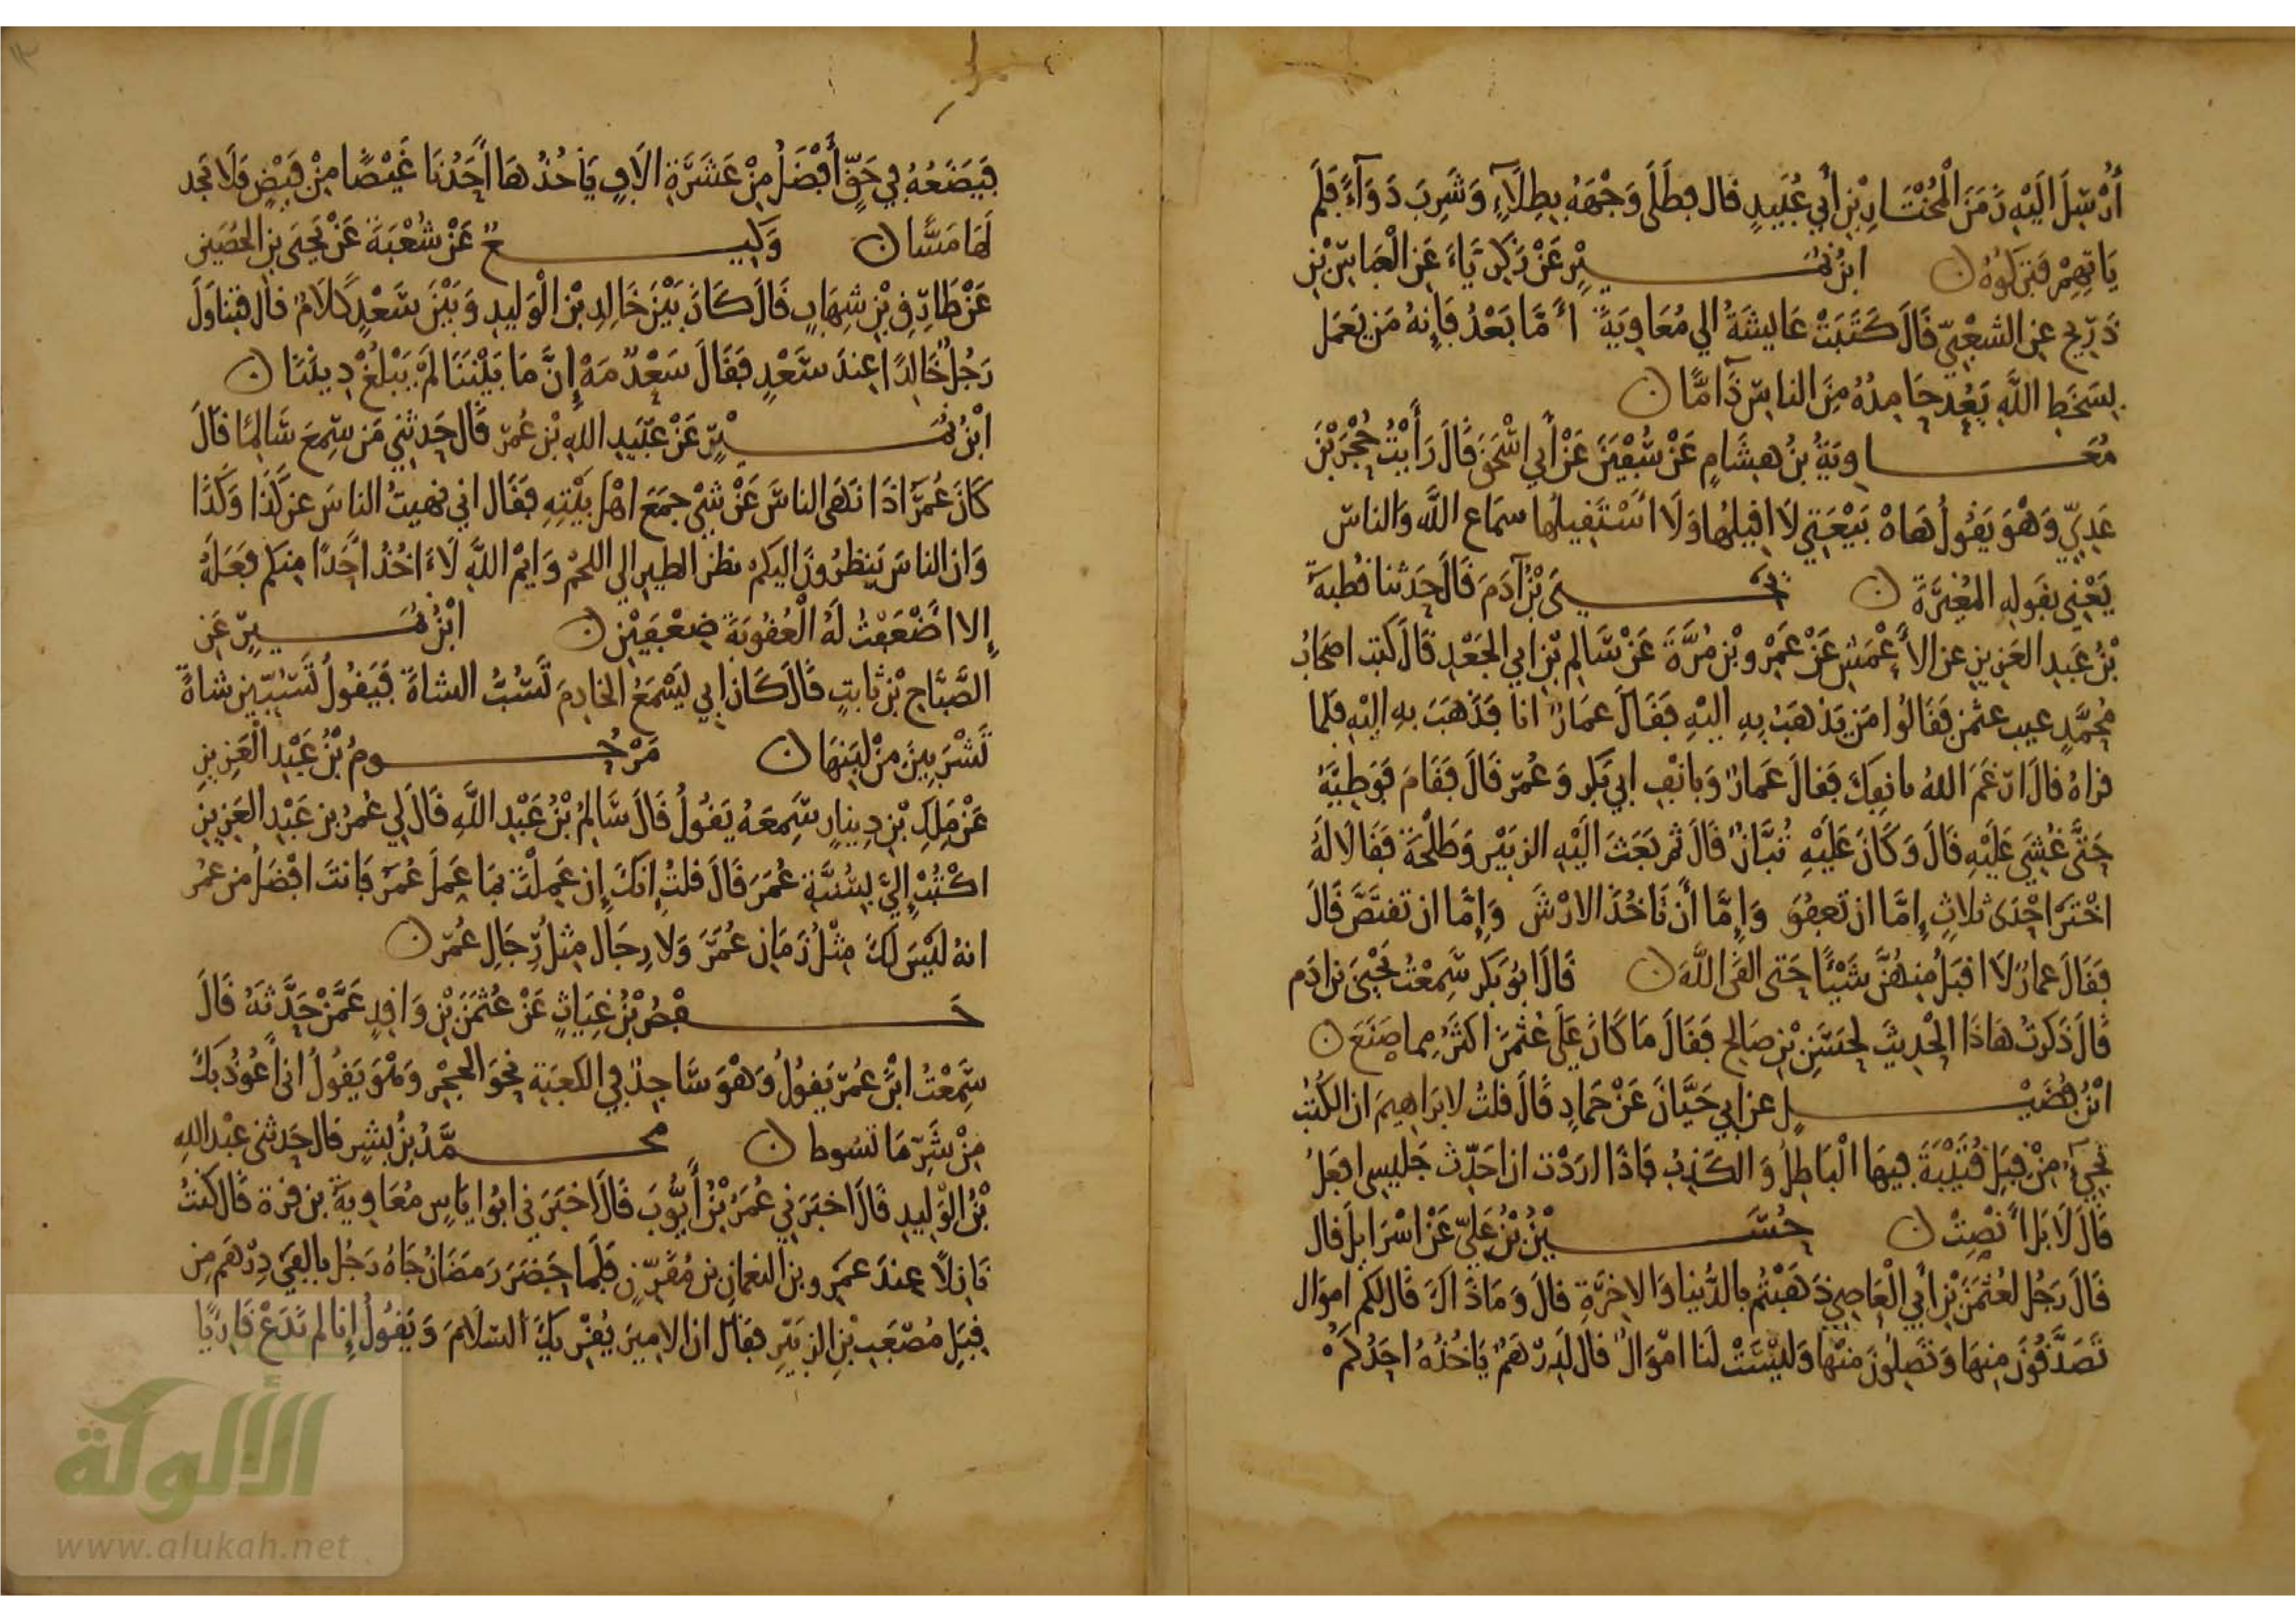 أُرْسِلَ الَيْهِ زَمَنَ الْمُخْتَارِ بْنِ أَبِي عُبَيدٍ قال فطَلَى وَجْهَهُ بِطِلَآءٍ وَشَرِبَ دَوَآءً فَلَم
يَاتِهِمْ فَتَرَكُوهُ ابْنُ نُمَيْرٍ عَنْ زَكَرِيَّاءَ عَنِ الْعَبَاسِ بْنِ
ذَرِيحٍ عن الشَعْبِيّ قَالَ كَتَبَتْ عَايشَةُ الي مُعَاوِيَةَ أمَّا بَعْدُ فَإِنهُ مَن يَعْمَل
بِسَخَطِ اللَّهِ يَعُد حَامِدُهُ مِنَ الناسِ ذَامًّا
مُعَاوِيَةُ بنُ هِشَامٍ عَنْ سُفْيَنَ عَنْ أَبِي اسْحَقَ قَالَ رَأَيْتُ حُجْرَ بْنَ
عَدِيٍّ وَهْوَ يَقُولُ هَاهْ بَيْعَتِي لَا اقيلُها وَلَا أَسْتَقِيلُها سمَاع اللَّهِ وَالناسِ
يَعْنِي بقَولِهِ المُغِيرَةَ يَحْيَى بْنُ آدَمَ قَالَ حَدثنا قُطبةُ
بْنُ عَبدِ العَزِيزِ عن الأَعْمَشِ عَنْ عَمْرِو بْنِ مُرَّةَ عَنْ سَالِمِ بْنِ ابي الجَعْدِ قَالَ كتب اصحَابُ
مُحَمَّدٍ عيب عثمن فَقَالُوا مَن يَذهَبُ بِهِ اليْهِ فَقَالَ عمَارٌ انا فَذَهَبَ بِهِ اليْهِ فلما
قراهُ قالَ ارْغَمَ اللهُ بانفِكَ فَقالَ عَمارٌ وَبانْفِ ابي بَكر وَعُمَرَ قَالَ فَقَامَ فَوَطِيَهُ
حَتَّى غُشِيَ عَلَيْهِ قَالَ وَكَانَ عَلَيْهِ تُبَّانٌ قَالَ ثم بَعَثَ الَيْهِ الزبَيْرَ وَطَلْحَةَ فَقَالَا لَهُ
اخْتَر احْدَى ثلَاثٍ إمَّا ان تَعفُوَ وَإِمَّا أَنْ تَاخُذَ الارْشَ وَإِمَّا ان تَقتَصَّ قَالَ
فَقَالَ عمارٌ لَا اقبَلُ مِنهُنَّ شَيْئًا حَتى القَى اللَّهَ قَالَ ابُو بَكرٍ سَمِعْتُ يَحْيَى بن ادَم
قَالَ ذَكَرتُ هَاذَا الْحَدِيثَ لِحَسَنِ بْنِ صَالِحٍ فَقَالَ مَا كَانَ عَلَى عُثْمَنَ أكثَرُ مِما صَنَعَ
ابْنُ فُضَيْلٍ عن ابِي حَيَّانَ عَنْ حَمادٍ قَالَ قلتُ لابرَاهِيمَ ان الكُتُبَ
تَجِيءُ مِنْ قِبَلِ قُتَيْبَةَ فِيهَا الْبَاطِلُ وَالكَذِبُ فَاذَا ارَدْتُ ان احَدِّثَ جَلِيسِي افعَلُ
قَالَ لَا بَل أَنْصِتْ حُسَيْنُ بْنُ عَلِيّ عَنْ اسْرَايلَ قال
قَالَ رَجُل لعُثْمَنَ بْنِ أَبِي الْعَاصِي ذَهَبْتُم بالدُّنيا وَالاخِرَةِ قالَ وَمَاذَاكَ قَال لكم اموَال
تَصَدَّقُونَ مِنهَا وَتَصِلُونَ مِنْهَا وَلَيْسَتْ لَنَا امْوَالٌ قال لَدِرْهَمٌ يَاخُذُهُ احَدُكُمْ
فَيَضَعُهُ فِي حَقٍّ أَفْضَلُ مِنْ عَشَرَةِ الافٍ يَأخُذُهَا أَحَدُنَا غَيْضًا مِنْ فَيْضٍ فَلَا يَجد
لَهَا مَسًّا وَكِيعٌ عَنْ شُعْبَةَ عَنْ يَحْيَى بنِ الحُصَينِ
عَنْ طَارِقِ بْنِ شِهَابٍ قَالَ كَانَ بَيْنَ خَالِدِ بْنِ الْوَلِيدِ وَبَيْنَ سَعْدٍ كَلَامٌ قال فتناوَلَ
رَجُلٌ خَالِدًا عِندَ سَعْدٍ فَقَالَ سَعْدٌ مَهْ إِنَّ مَا بَيْنَنَا لَمْ يَبْلُغْ دِينَنَا
ابْنُ نُمَيْرٍ عَنْ عُبَيدِ اللهِ بْنِ عُمَر قَالَ حَدثَنِي مَن سَمِعَ سَالِمًا قالَ
كَانَ عُمَرُ اذَا نَهَى الناسَ عَنْ شَيْءٍ جمَعَ اهْلَ بَيْتِهِ فَقَال اني نهيتُ الناسَ عن كَذَا وَكَذَا
وَان الناسَ يَنظرُونَ اليكم نظرَ الطيرِ الي اللحْمِ وَايْمُ اللَّهِ لَا ءَاخُذُ احَدًا مِنكم فَعَلَهُ
إلا اضْعَفْتُ لَهُ الْعُقُوبَةَ ضِعْفَيْنِ ابْنُ نُمَيرٍ عَنِ
الصَّبَّاحِ بْنِ ثَابتٍ قَالَ كَانَ ابِي يَسْمَعُ الخادِمَ تَسُبُّ الشاةَ فَيَقُولُ تَسُبِّينَ شاةً
تَشْرَبِينَ مِنْ لَبَنِهَا مَرْحُومُ بْنُ عَبْدِ الْعَزِيزِ
عَنْ مَلِكِ بْنِ دِينارٍ سَمِعَهُ يَقُولُ قَالَ سَالِمُ بْنُ عَبْدِ اللَّهِ قَالَ لِي عُمَرُ بن عَبْدِ العَزِيزِ
اكْتُبْ إِلَيَّ بِسُنَّةِ عُمَرَ قَالَ قلتُ انكَ إن عَمِلْتَ بمَا عَمِلَ عُمَرُ فَانتَ افْضَلُ من عُمَر
انهُ لَيْسَ لَكَ مِثْلُ زَمَانِ عُمَرَ وَلا رِجَال مِثلُ رِجَالِ عُمَر
حَفْصُ بْنُ غِيَاثٍ عَنْ عُثْمَنَ بْنِ وَاقِدٍ عَمَّنْ حَدَّثَهُ قَالَ
سَمِعْتُ ابْنَ عُمَرَ يَقُولُ وَهْوَ سَاجِدٌ فِي الكعْبَةِ نحوَ الحجْرِ وَهْوَ يَقُولُ انِي أَعُوذُ بكَ
مِنْ شَرِّ مَا تسُوط محمَّدُ بْنُ بِشرٍ قال حَدثني عَبْدُ اللهِ
بْنُ الوَلِيدِ قَالَ اخبَرَنِي عُمَرُ بْنُ أَيُّوبَ قَالَ اخبَرَنِي ابُو ايَاسٍ مُعَاوِيَةُ بن قرة قَال كنتُ
نَازِلًا عِندَ عَمْرِو بن النعمانِ بْنِ مُقَرِّنٍ فَلَما حَضَرَ رَمَضَانُ جَاهُ رَجُل بالفَي دِرْهَم مِن
قِبَلِ مُصْعَبِ بْنِ الزبَيْرِ فقَالَ ان الامِيرَ يُقْرِيكَ السلَامَ وَيَقُولُ إنا لم نَدَعْ قَارِيًا
الألوكة
www.alukah.net